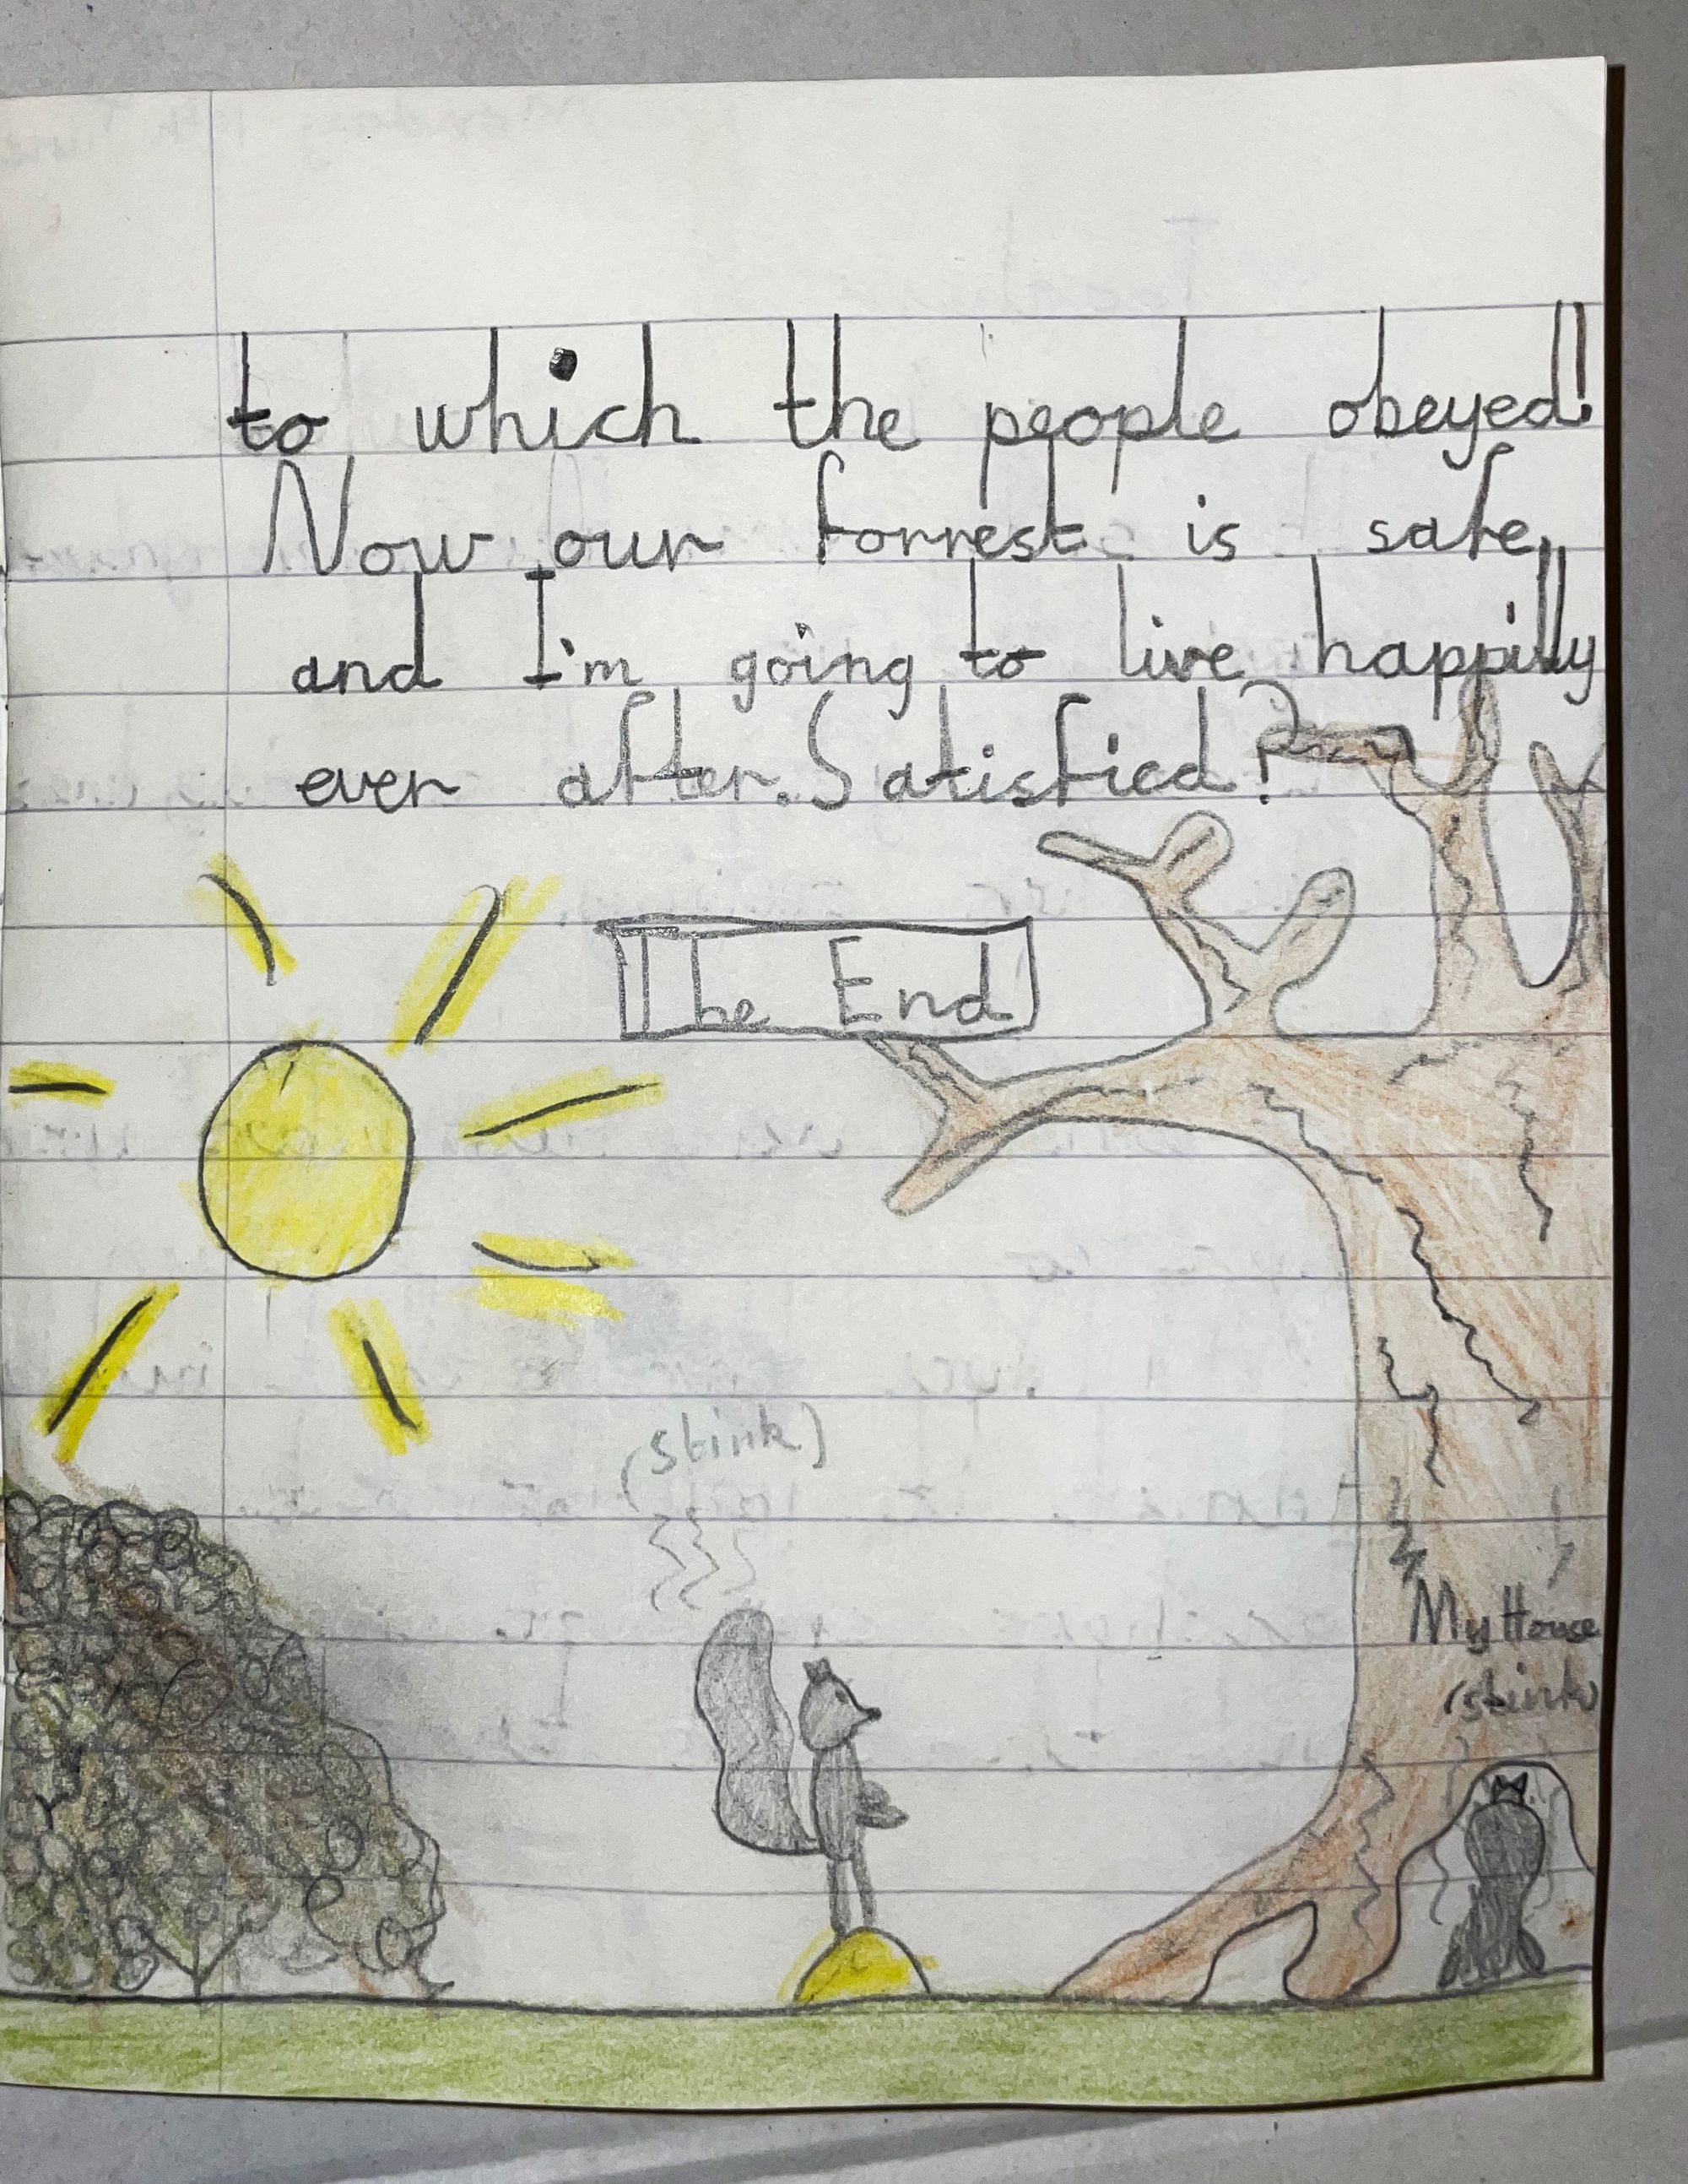 to which the people obeyed!
Now our forrest is safe,
and I'm going to live happilly
ever after. Satisfied?
The End
(stink)
My House
(stink)